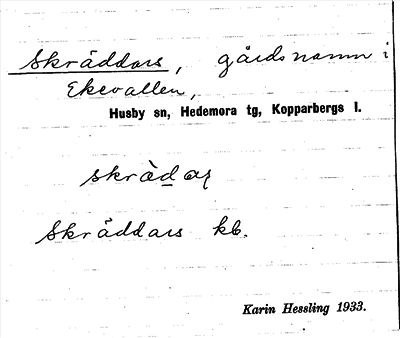 Skräddars, gårdsnamn i
Ekevallen,
Husby sn, Hedemora tg, Kopparbergs l.
skrädaʂ
Skräddars kb.
Karin Hessling 1933.